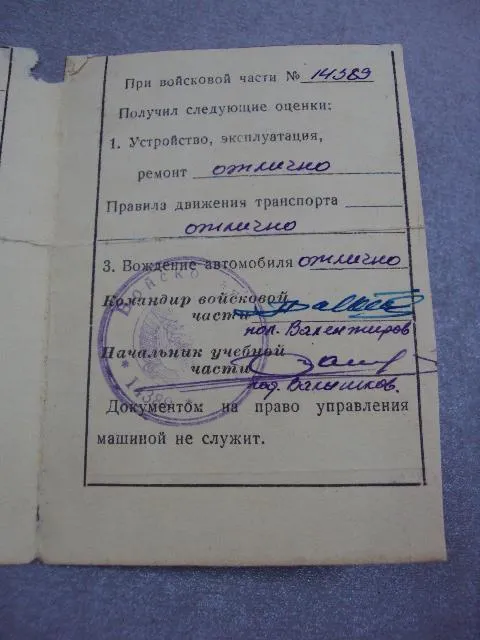 При войсковой части № 14389
Получил следующие оценки:
1. Устройство, эксплуатация,
ремонт отлично
Правила движения транспорта
отлично
3. Вождение автомобиля отлично
Командир войсковой
части
пол.
Начальник учебной
части
Документом на право управления
машиной не служит.
Войско
* 14389 *